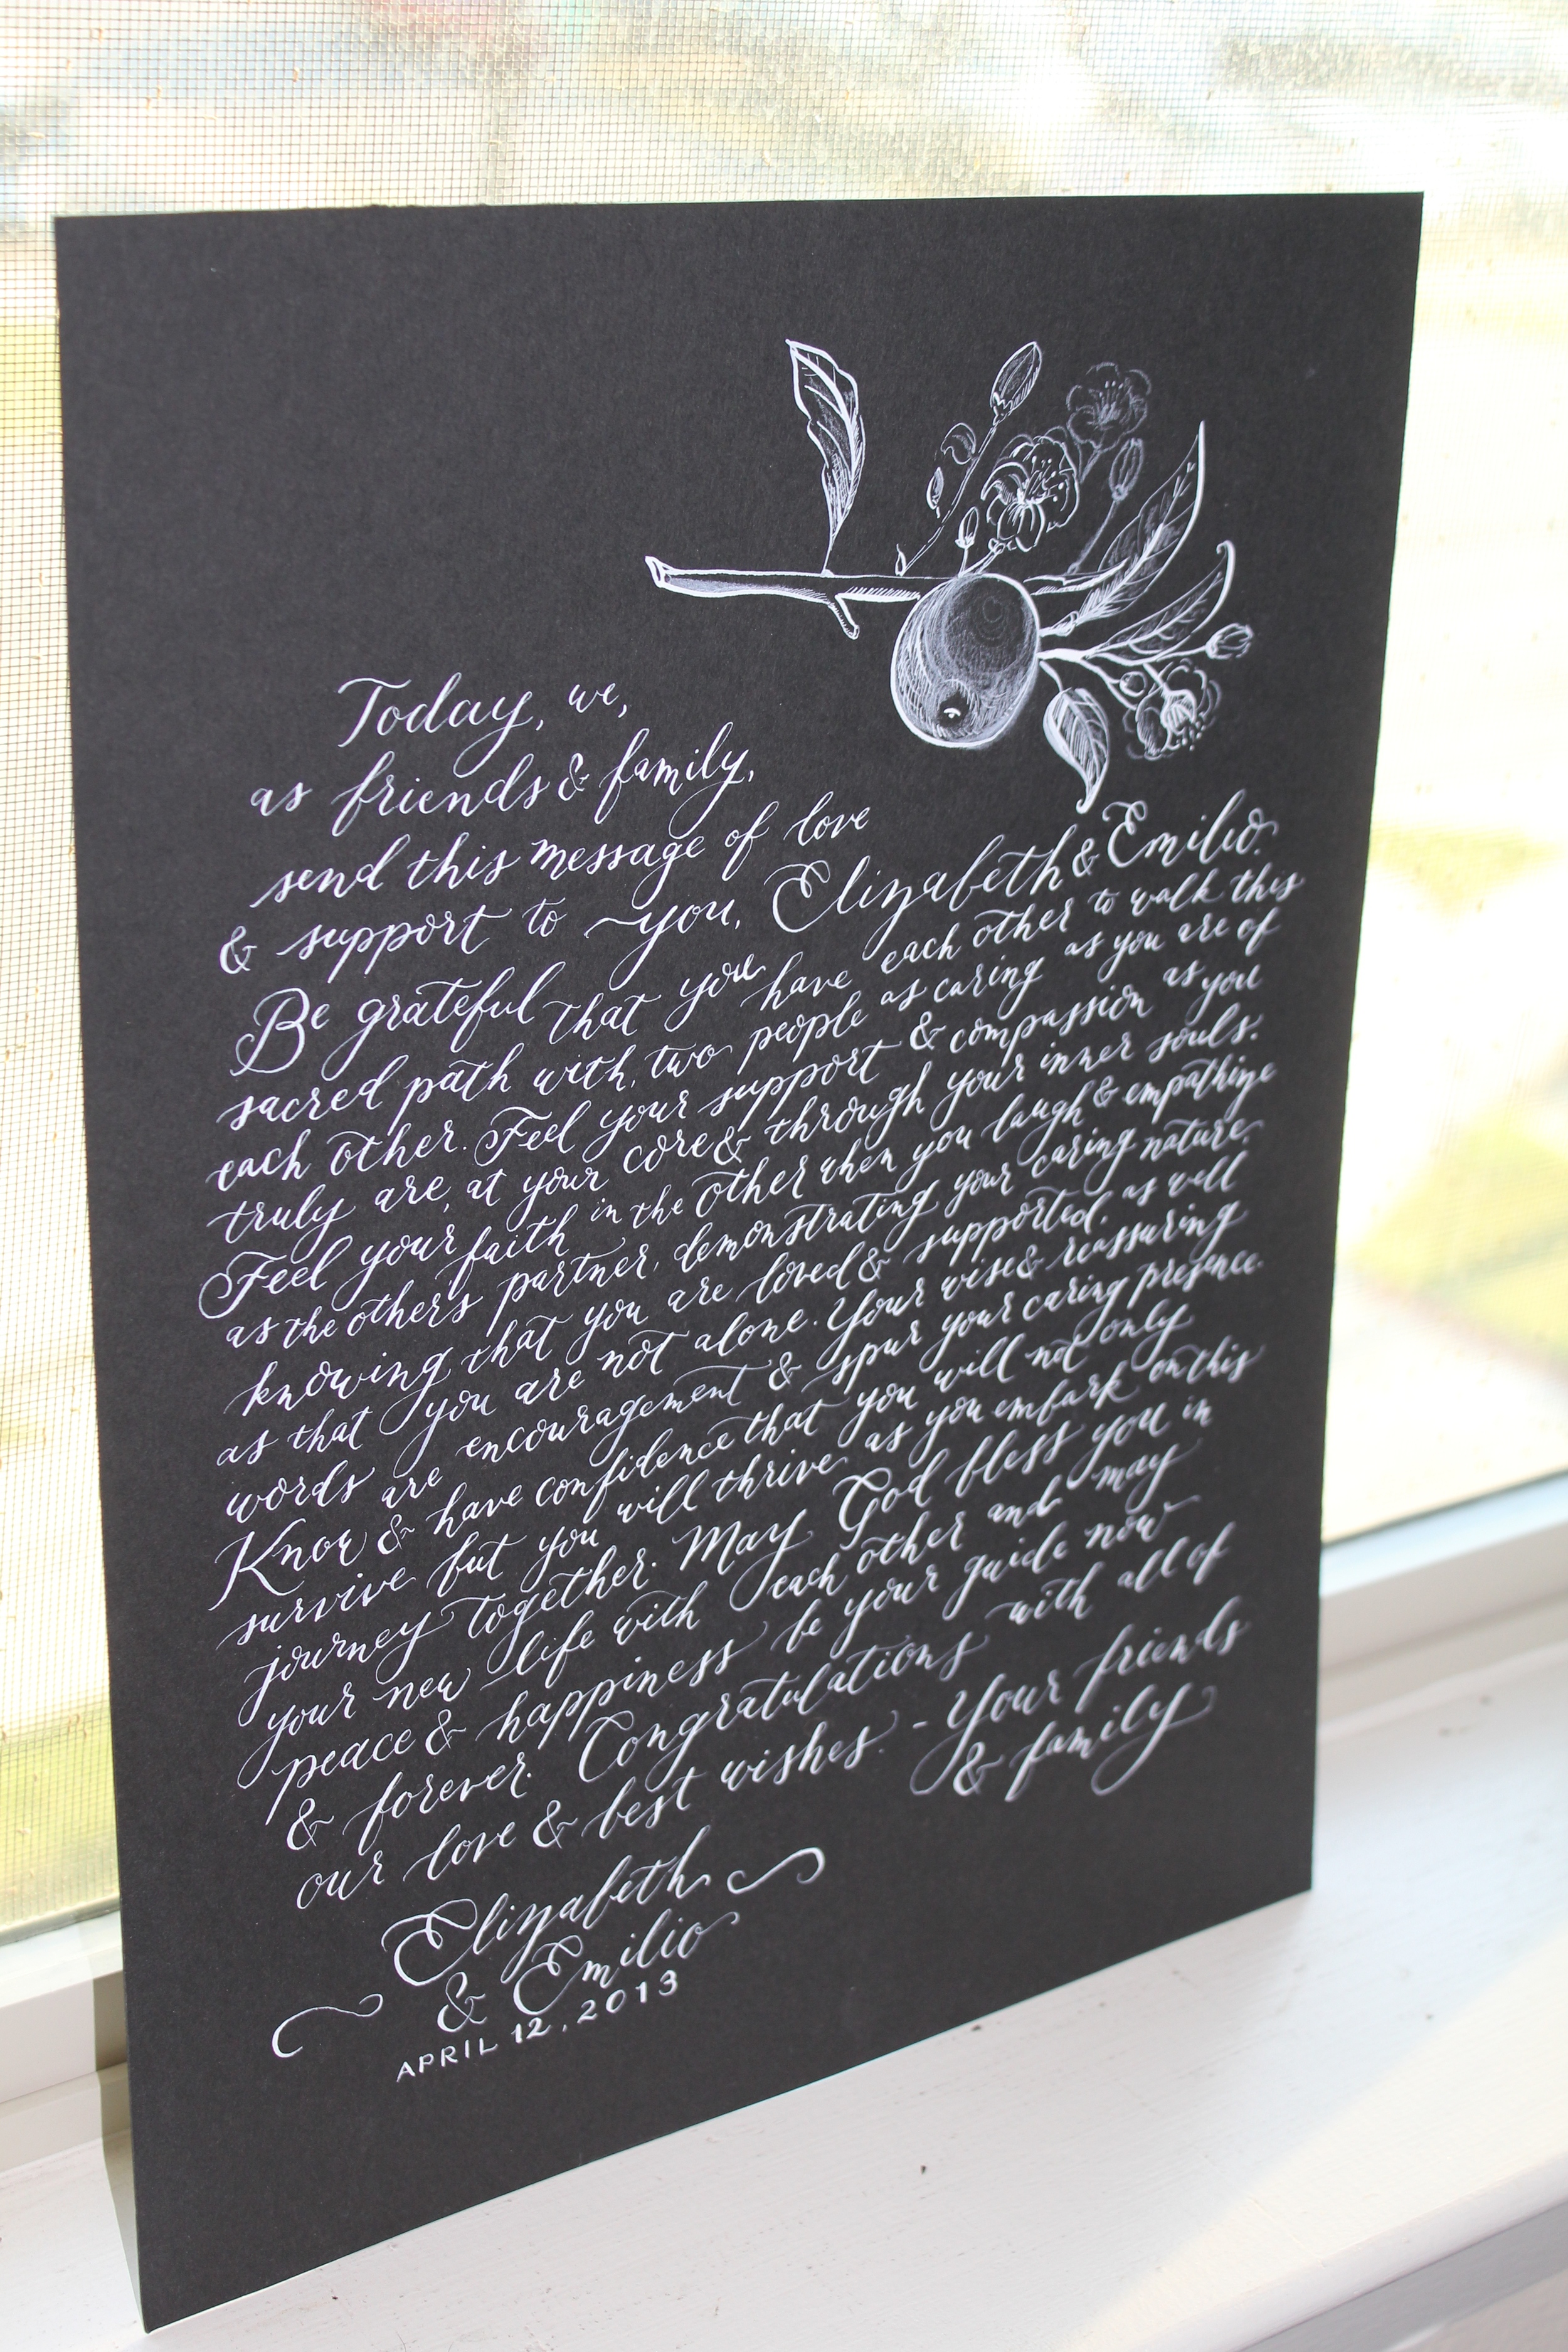 Today, we,
as friends & family,
send this message of love
& support to you, Elizabeth & Emilio.
Be grateful that you have each other to walk this
sacred path with, two people as caring as you are of
each other. Feel your support & compassion as you
truly are, at your core & through your inner souls.
Feel your faith in the other when you laugh & empathize
as the others partner, demonstrating your caring nature,
knowing that you are loved & supported, as well
as that you are not alone. Your wise & reassuring
words are encouragement & spur your caring presence.
Know & have confidence that you will not only
survive but you will thrive as you embark on this
journey together. May God bless you in
your new life with each other and may
peace & happiness be your guide now
& forever. Congratulations with all of
our love & best wishes. - Your friends
& family
Elizabeth
& Emilio
APRIL 12, 2013